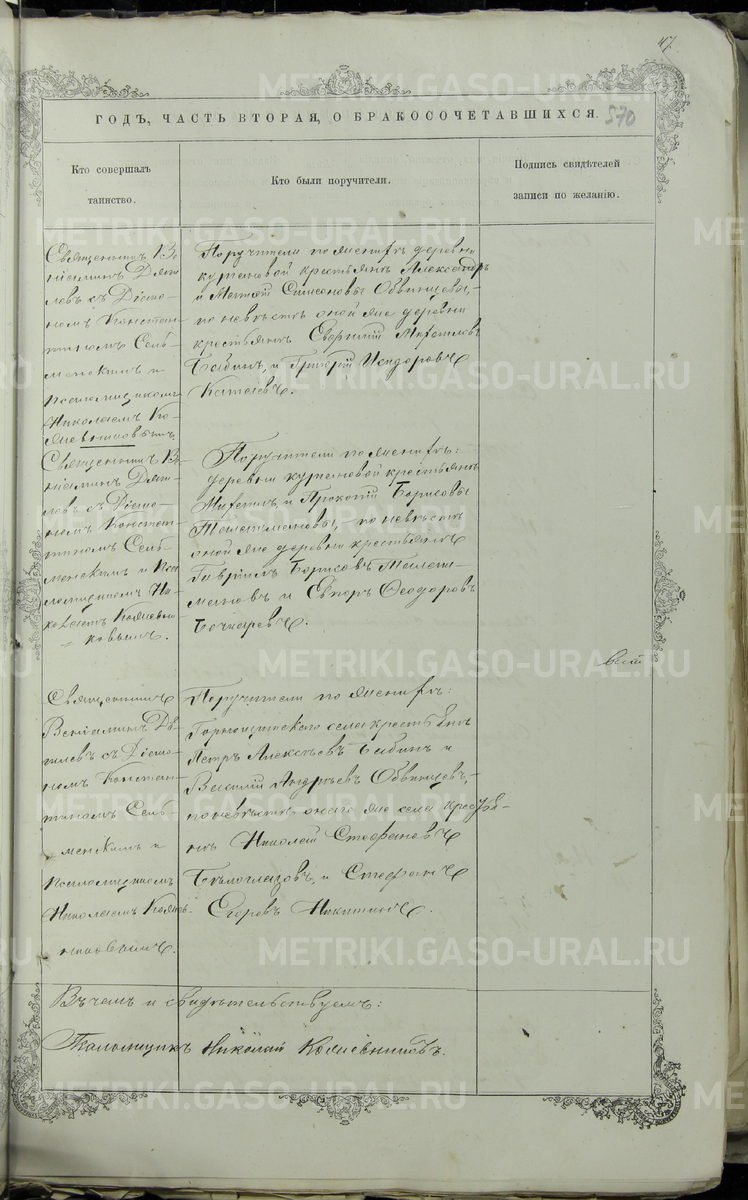 47
ГОДЪ, ЧАСТЬ ВТОРАЯ, О БРАКОСОЧЕТАВШИХСЯ. 570
Кто совершалъ
таинство.
Кто были поручители.
Подпись свидѣтелей
записи по желанію.
Священникъ Ве-
ніаминъ
ловъ съ Діако-
номъ Констан-
тиномъ Сель-
менскимъ и
Псаломщикомъ
Николаемъ Ко-
жевниковымъ
Поручители по женихѣ деревни
крестьянъ Александръ
и Матвѣй Симеоновы Обвинцевы,
по невѣстѣ оной же деревни
крестьянъ Евфимій Михаиловъ
Бабинъ, и Григорій Исидоровъ
Китаевъ.
Священникъ Ве-
ніаминъ
ловъ съ Діако-
номъ Констан-
тиномъ Сель-
менскимъ и Пса-
ломщикомъ Ни-
колаемъ Кожевни-
ковымъ.
Поручители по женихѣ:
деревни крестьянъ
Михаилъ, и Прокопій Борисовы
по невѣстѣ
оной же деревни крестьянъ
Гавріилъ Борисовъ
и Ѳеодоровъ
Бочкаревъ.
Священникъ
Веніаминъ
съ Діако-
номъ Констан-
тиномъ Сель-
менскимъ и
Псаломщикомъ
Николаемъ Кожев-
никовымъ.
Поручители по женихѣ:
Горнощитскаго села крестьянъ
Петръ Алексѣевъ Бабинъ и
Василій Андреевъ Обвинцевъ,
по невѣстѣ онаго же села крестья-
нъ Николай Стефановъ
Бѣлоглазовъ, и Стефанъ
Егоровъ Никитинъ.
Въ чемъ и свидѣтельствуемъ:
Николай Кожевниковъ.
METRIKI.GASO-URAL.RU